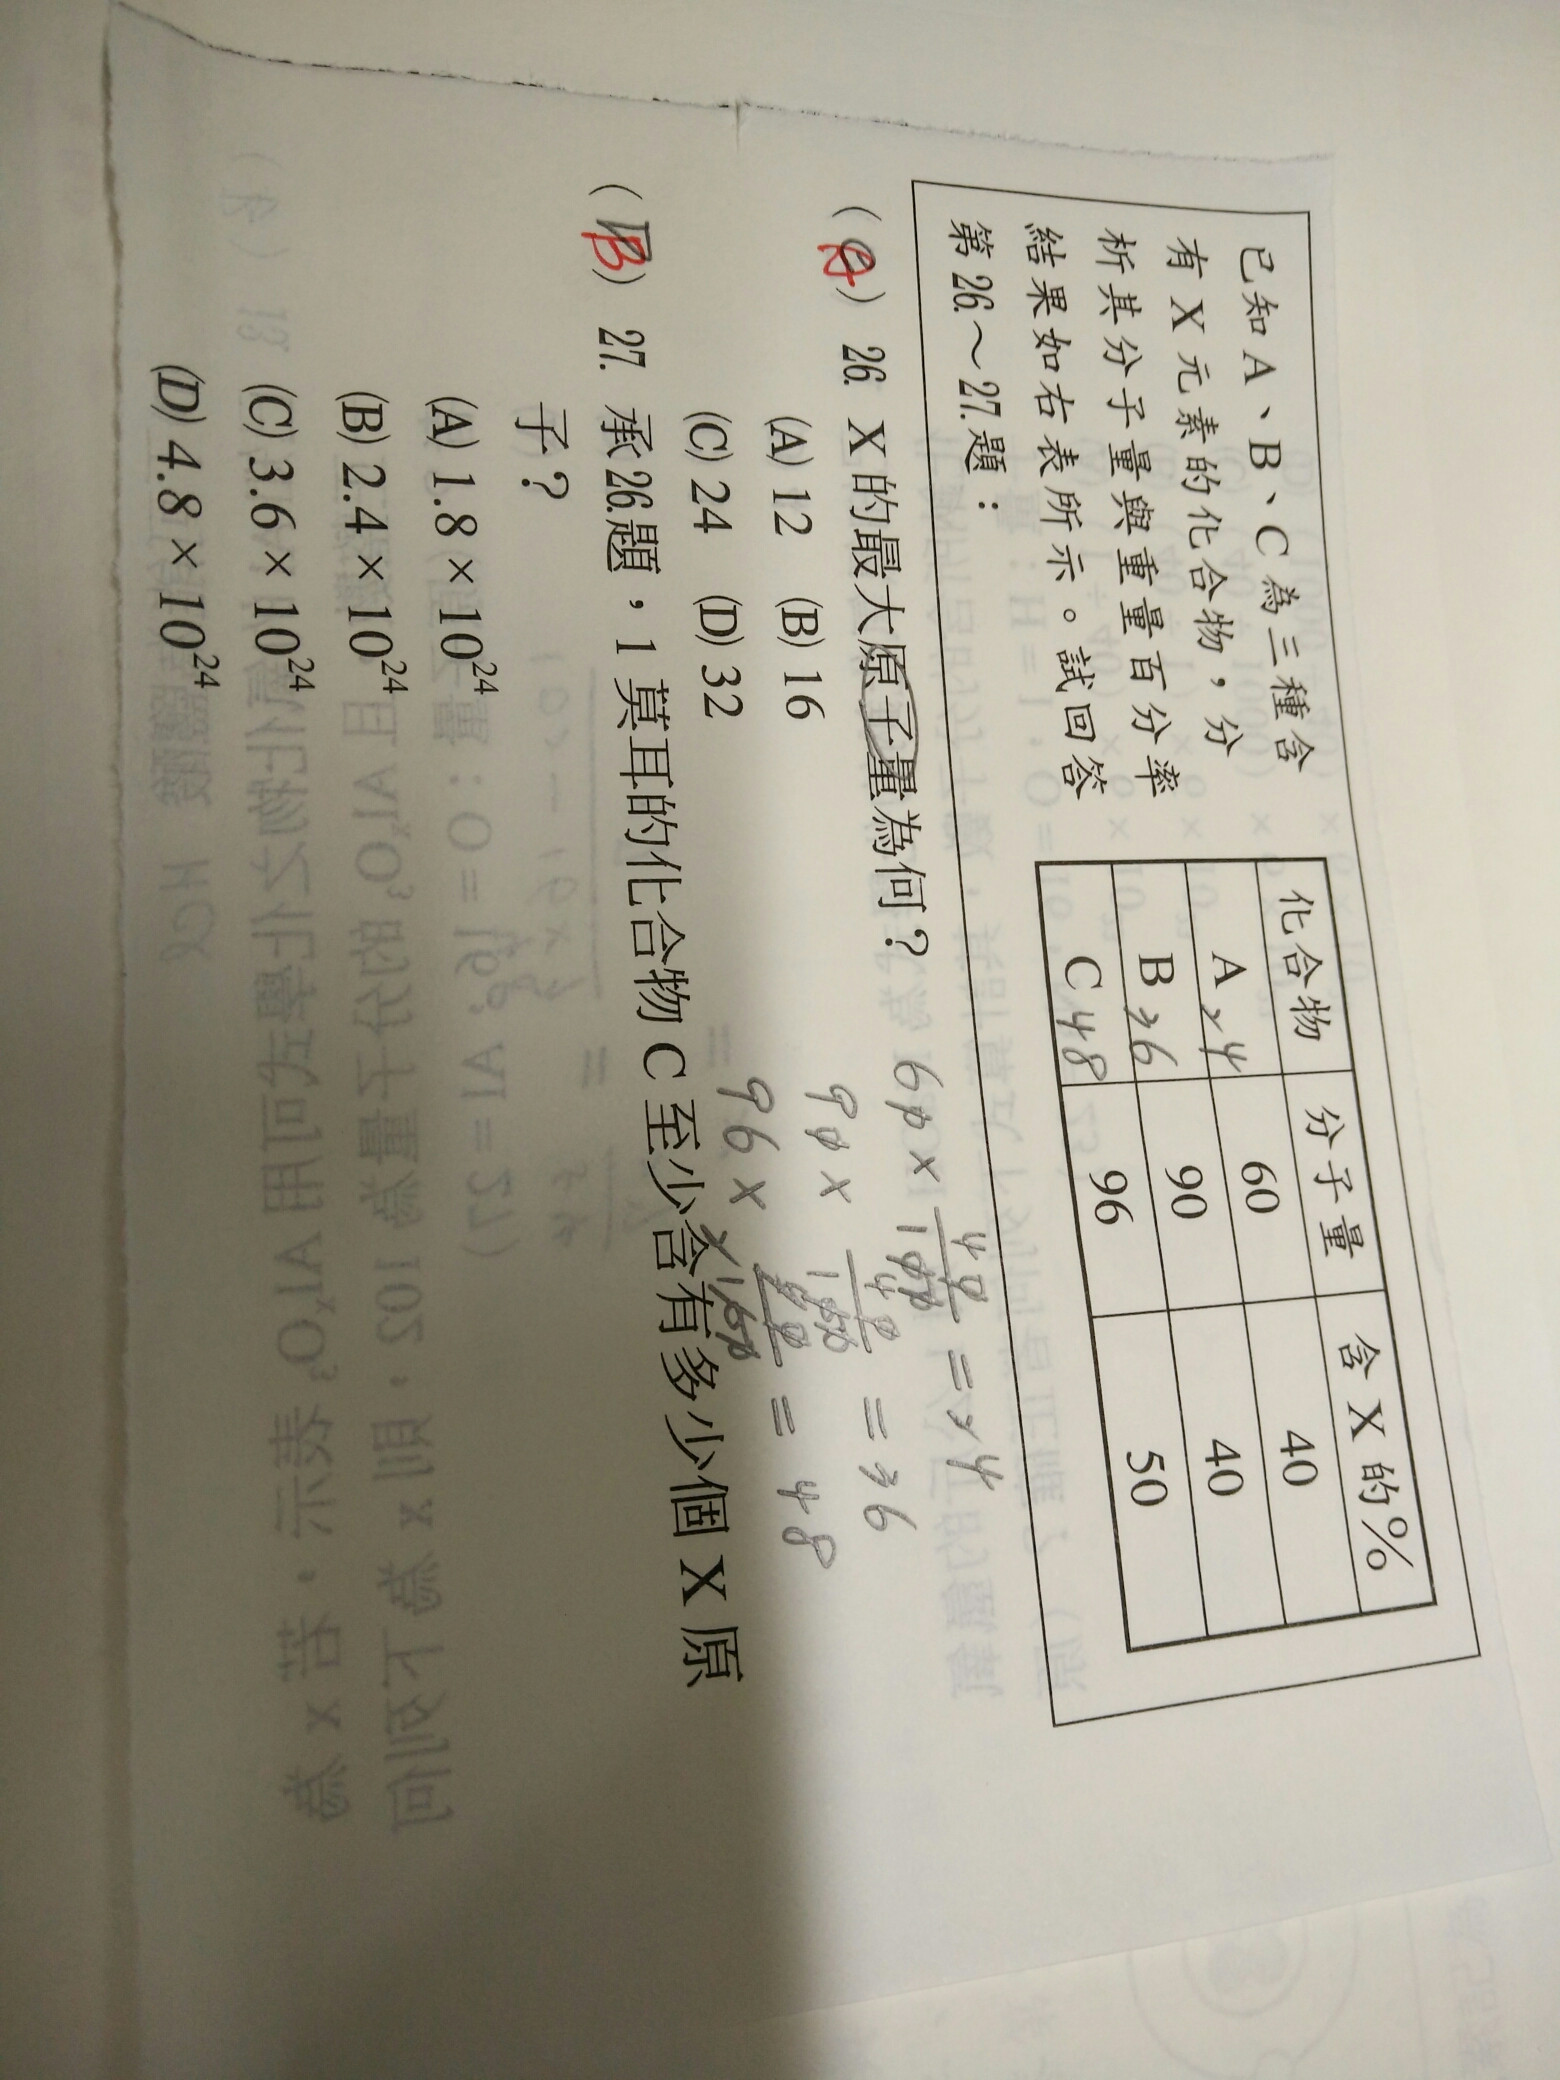 已知 A、B、C 為三種含
有 X 元素的化合物，分
析其分子量與重量百分率
結果如右表所示。試回答
第 26.～27.題：
化合物 分子量 含 X 的%
A 24 60 40
B 36 90 40
C 48 96 50
(A) 26. X 的最大原子量為何？
(A) 12 (B) 16
(C) 24 (D) 32
60 × 40/100 = 24
90 × 40/100 = 36
96 × 50/100 = 48
(B) 27. 承26.題，1 莫耳的化合物 C 至少含有多少個 X 原
子？
(A) 1.8 × 10²⁴
(B) 2.4 × 10²⁴
(C) 3.6 × 10²⁴
(D) 4.8 × 10²⁴